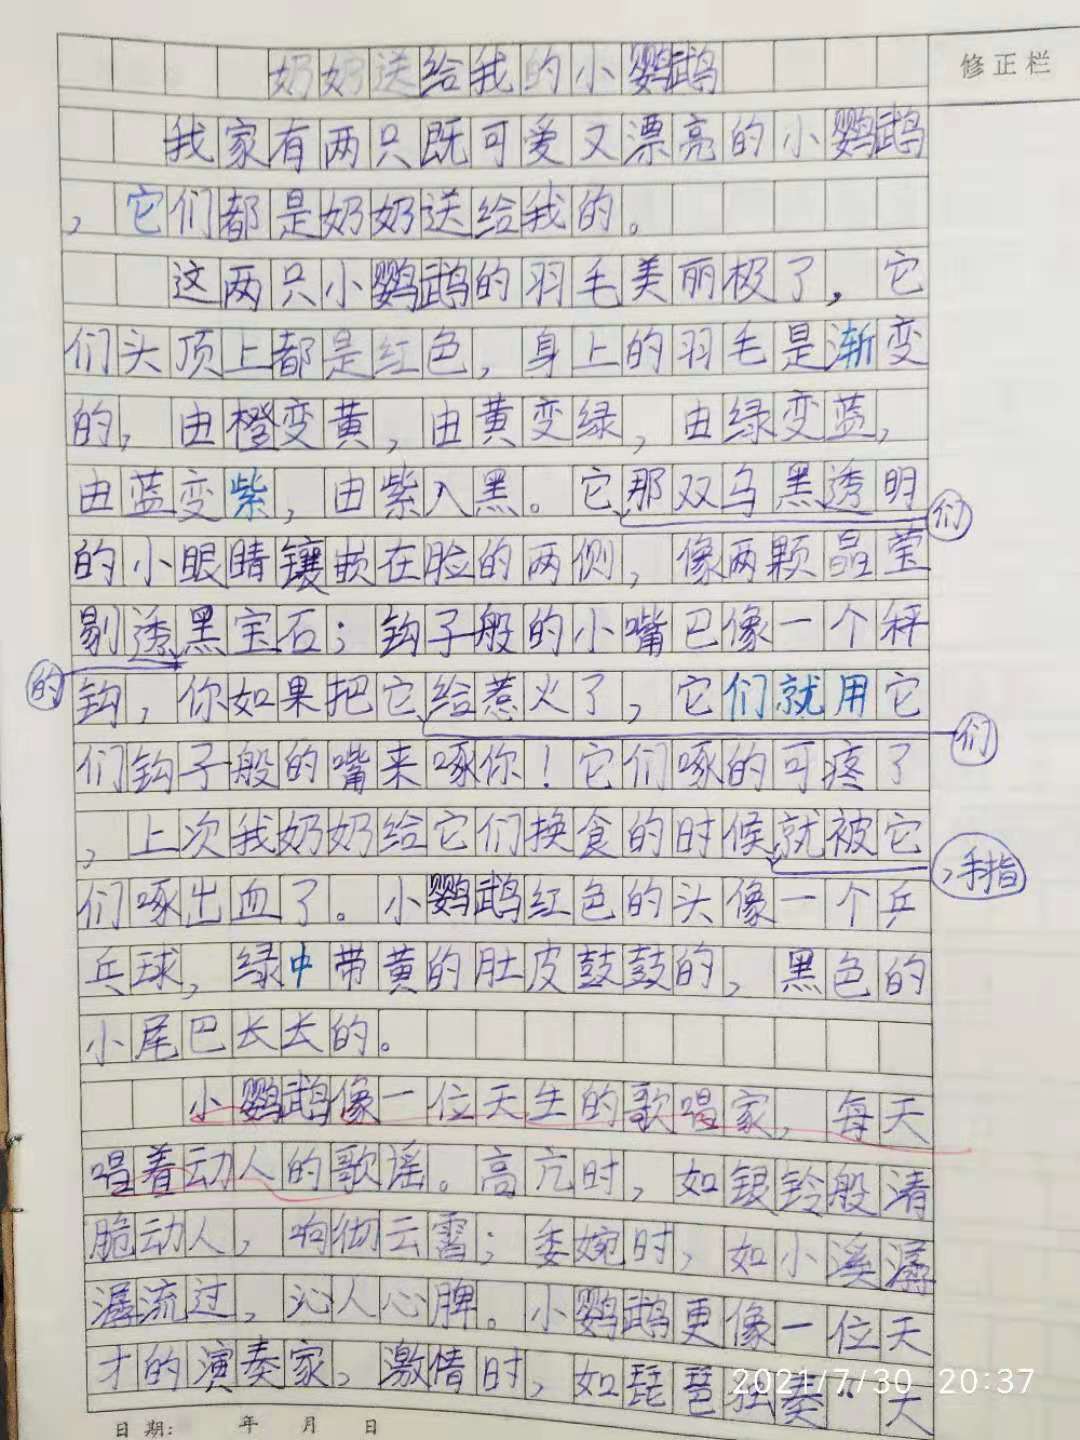 奶奶送给我的小鹦鹉
修正栏
我家有两只既可爱又漂亮的小鹦鹉
，它们都是奶奶送给我的。
这两只小鹦鹉的羽毛美丽极了，它
们头顶上都是红色，身上的羽毛是渐变
的，由橙变黄，由黄变绿，由绿变蓝，
由蓝变紫，由紫入黑。它那双乌黑透明
们
的小眼睛镶嵌在脸的两侧，像两颗晶莹
剔透黑宝石；钩子般的小嘴巴像一个秤
的
钩，你如果把它给惹火了，它们就用它
们
们钩子般的嘴来啄你！它们啄的可疼了
，上次我奶奶给它们换食的时候就被它
，手指
们啄出血了。小鹦鹉红色的头像一个乒
乓球，绿中带黄的肚皮鼓鼓的，黑色的
小尾巴长长的。
小鹦鹉像一位天生的歌唱家，每天
唱着动人的歌谣。高亢时，如银铃般清
脆动人，响彻云霄；委婉时，如小溪潺
潺流过，沁人心脾。小鹦鹉更像一位天
才的演奏家，激情时，如琵琶独奏"大
2021/7/30 20:37
日期： 年 月 日